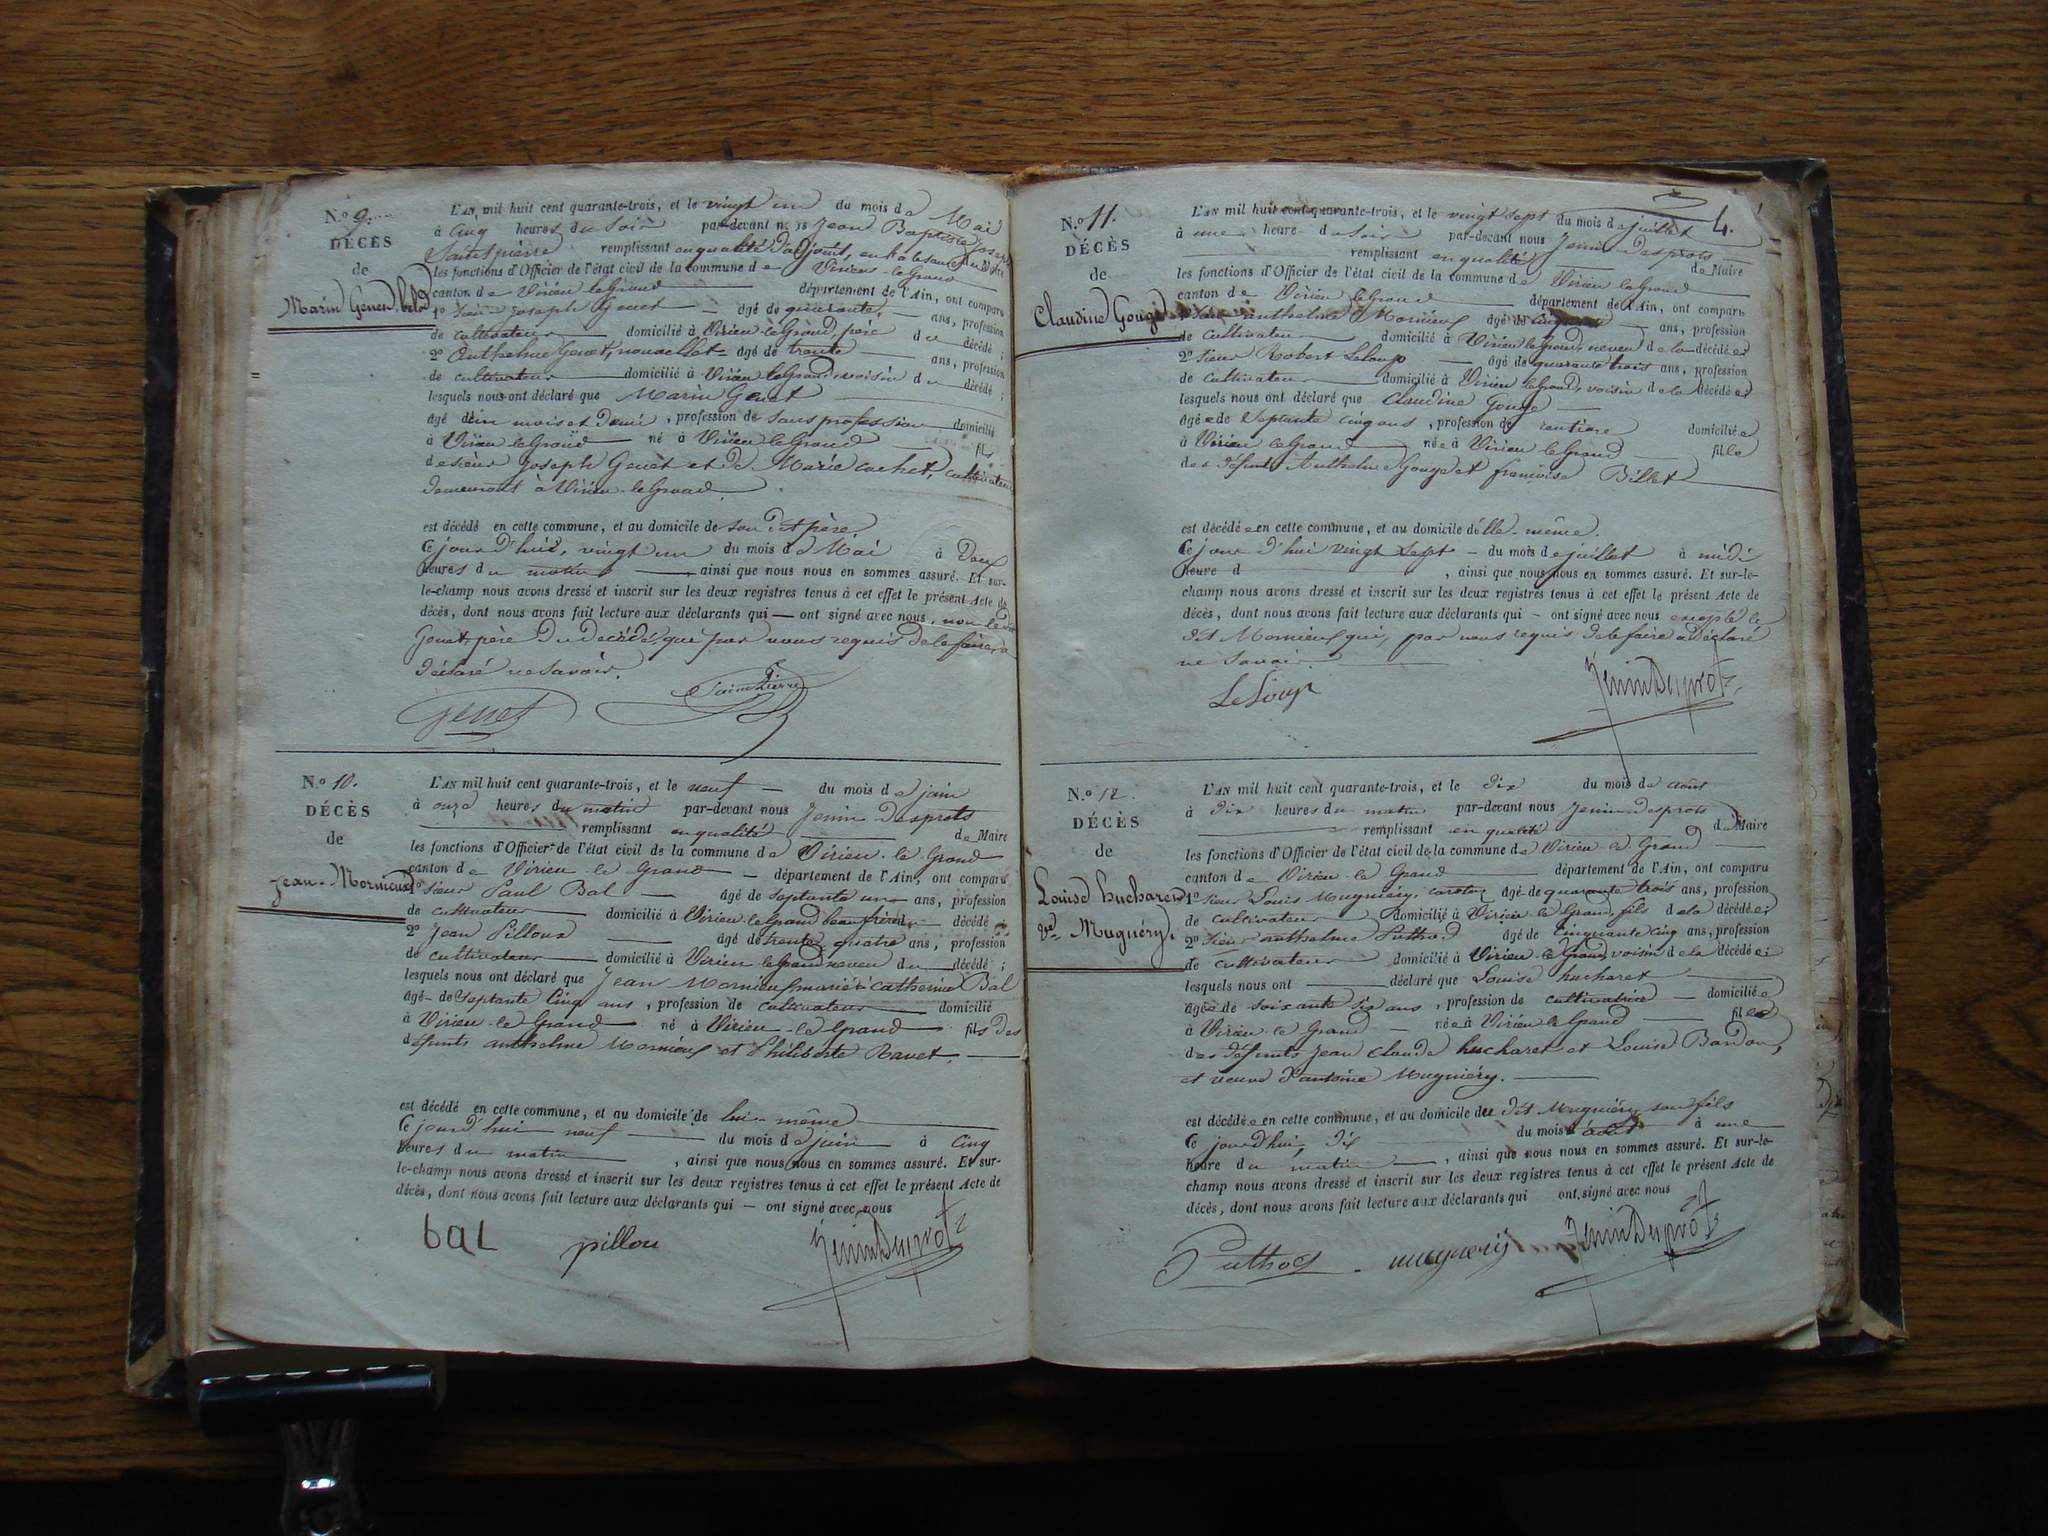 N.o 9.
DÉCÈS
de
Marin Genet
L'AN mil huit cent quarante-trois, et le vingt un du mois de Mai
à cinq heures du soir par-devant nous Jean Baptiste Joseph
Saint pierre remplissant en qualité d'adjoint, en l'absence du Maire
les fonctions d'Officier de l'état civil de la commune de Virieu-le-Grand
canton de Virieu le Grand département de l'Ain, ont comparu
1o Sieur Joseph Genet âgé de quarante ans, profession
de cultivateur domicilié à Virieu-le-Grand, père du décédé ;
2o Anthelme Genet, âgé de trente ans, profession
de cultivateur domicilié à Virieu le Grand, voisin du décédé ;
lesquels nous ont déclaré que Marin Genet
âgé d'un mois et demi, profession de sans profession domicilié
à Virieu-le-Grand né à Virieu le Grand fils
de sieur Joseph Genet et de Marie cachet, cultivateurs
demeurant à Virieu-le-Grand.
est décédé en cette commune, et au domicile de son dit père
Ce jourd'hui, vingt un du mois de Mai à Deux
heures du matin ainsi que nous nous en sommes assuré. Et sur-
le-champ nous avons dressé et inscrit sur les deux registres tenus à cet effet le présent Acte de
décès, dont nous avons fait lecture aux déclarants qui — ont signé avec nous, non le dit
Genet, père du décédé, qui par nous requis de le faire, a
déclaré ne savoir.
Genet Saint Pierre
N.o 10.
DÉCÈS
de
Jean Mornieux
L'AN mil huit cent quarante-trois, et le neuf — du mois de juin
à onze heures du matin par-devant nous Jenin Desprots
remplissant en qualité de Maire
les fonctions d'Officier de l'état civil de la commune de Virieu-le-Grand
canton de Virieu-le-Grand — département de l'Ain, ont comparu
1o sieur Paul Bal âgé de septante un ans, profession
de cultivateur domicilié à Virieu-le-Grand, beau frère du décédé
2o Jean Pilloux âgé de trente quatre ans, profession
de cultivateur domicilié à Virieu le Grand neveu du décédé ;
lesquels nous ont déclaré que Jean Mornieux, marié à Catherine Bal
âgé de septante cinq ans, profession de cultivateur domicilié
à Virieu-le-Grand né à Virieu-le-Grand fils des
défunts anthelme Mornieux et Philiberte Ravet.
est décédé en cette commune, et au domicile de lui-même
Ce jourd'hui neuf du mois de juin à cinq
heures du matin, ainsi que nous nous en sommes assuré. Et sur-
le-champ nous avons dressé et inscrit sur les deux registres tenus à cet effet le présent Acte de
décès, dont nous avons fait lecture aux déclarants qui — ont signé avec nous
bal pillou Jenin Desprots
4.
N.o 11.
DÉCÈS
de
Claudine Gouge
L'AN mil huit cent quarante-trois, et le vingt sept du mois de juillet
à une heure du soir par-devant nous Jenin Desprots
remplissant en qualité de Maire
les fonctions d'Officier de l'état civil de la commune de Virieu le Grand
canton de Virieu le Grand département de l'Ain, ont comparu
anthelme Mornieux âgé de ans, profession
de cultivateur domicilié à Virieu le Grand, neveu de la décédée
2o Sieur Robert Leloup âgé de quarante trois ans, profession
de cultivateur domicilié à Virieu le Grand, voisin de la décédée
lesquels nous ont déclaré que Claudine Gouge
âgée de Septante cinq ans, profession de rentière domiciliée
à Virieu le Grand née à Virieu le Grand fille
des défunts Anthelme Gouge et francoise Billet
est décédée en cette commune, et au domicile d'elle-même.
Ce jour d'hui vingt sept — du mois de juillet à midi
heure d, ainsi que nous nous en sommes assuré. Et sur-le-
champ nous avons dressé et inscrit sur les deux registres tenus à cet effet le présent Acte de
décès, dont nous avons fait lecture aux déclarants qui — ont signé avec nous excepté le
dit Mornieux qui, par nous requis de le faire a déclaré
ne savoir.
LeLoup Jenin Desprots
N.o 12.
DÉCÈS
de
Louise hucharet
Ve Mugniéry.
L'AN mil huit cent quarante-trois, et le dix du mois de août
à dix heures du matin par-devant nous Jenin Desprots
remplissant en qualité de Maire
les fonctions d'Officier de l'état civil de la commune de Virieu-le-Grand
canton de Virieu-le-Grand département de l'Ain, ont comparu
1o Sieur Louis Mugniéry, âgé de quarante trois ans, profession
de cultivateur domicilié à Virieu-le-Grand, fils de la décédée ;
2o Sieur anthelme Puthod âgé de Cinquante cinq ans, profession
de cultivateur domicilié à Virieu-le-Grand, voisin de la décédée ;
lesquels nous ont déclaré que Louise hucharet
âgée de soixante dix ans, profession de cultivatrice — domiciliée
à Virieu-le-Grand — née à Virieu le Grand fille
des défunts Jean Claude hucharet et Louise Bardou,
et veuve d'antoine Mugniéry.
est décédée en cette commune, et au domicile du dit Mugniéry son fils
Ce jourd'hui, dix du mois d'août à une
heure du matin, ainsi que nous nous en sommes assuré. Et sur-le-
champ nous avons dressé et inscrit sur les deux registres tenus à cet effet le présent Acte de
décès, dont nous avons fait lecture aux déclarants qui ont signé avec nous
Puthod mugniery Jenin Desprots